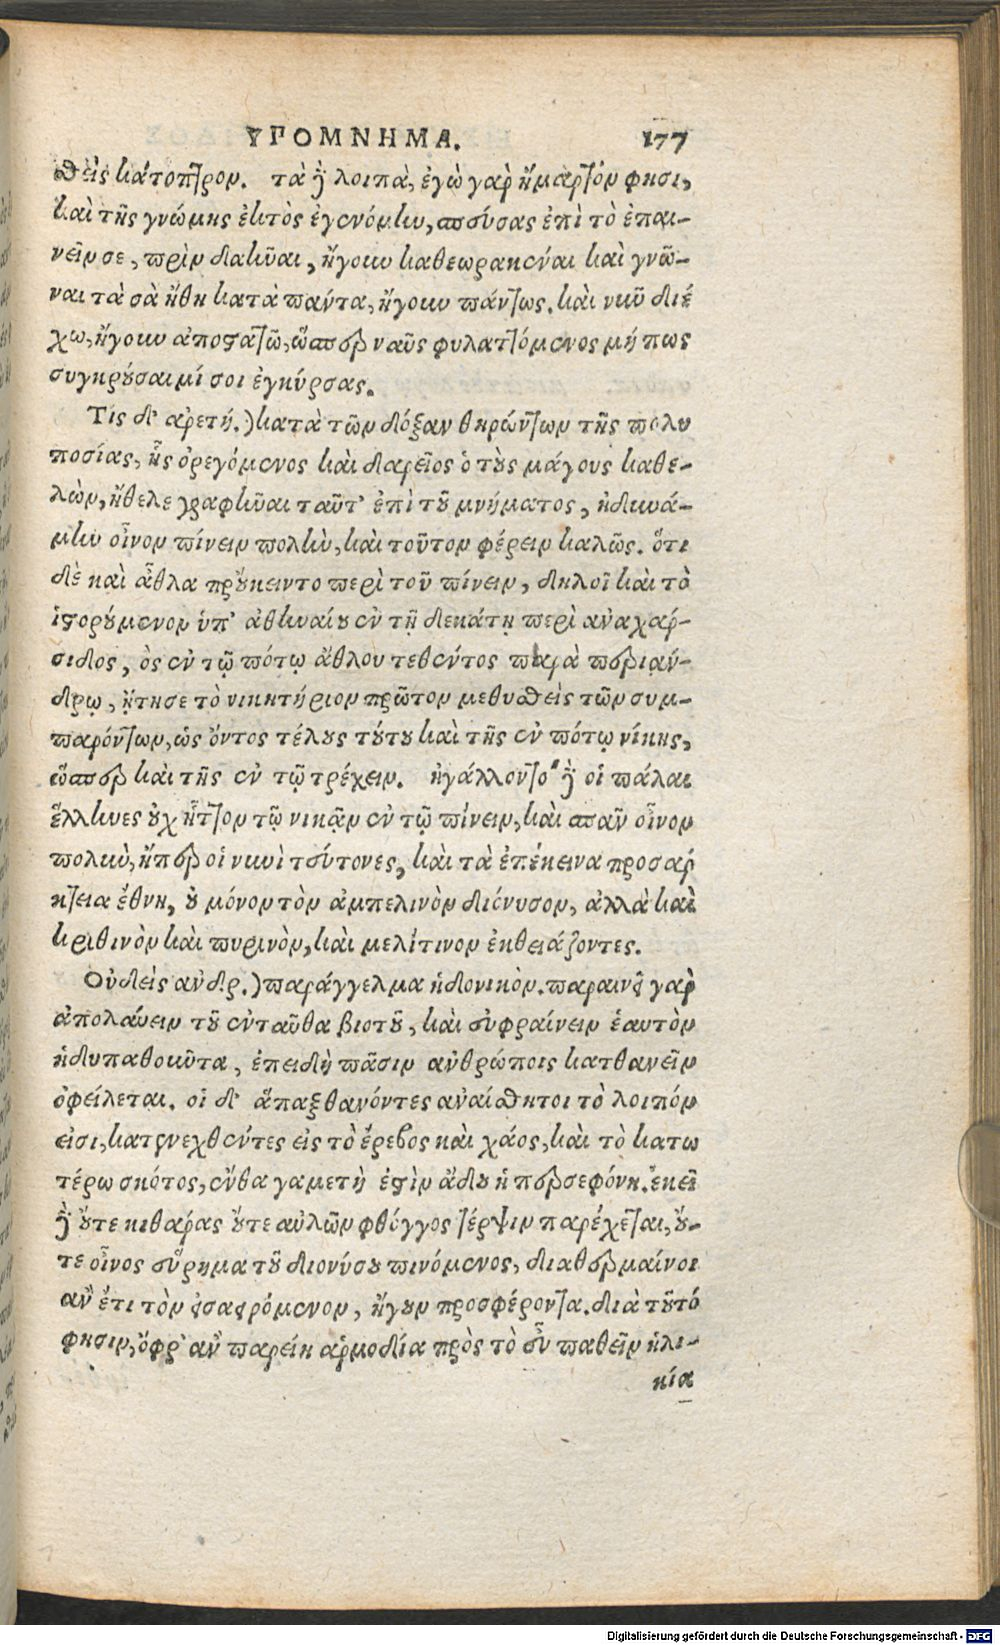 ΥΠΟΜΝΗΜΑ. 177
θεὶς κάτοπτρον. τὰ δὲ λοιπὰ, ἐγὼ γαρ ἥμαρτόν φησι,
καὶ τῆς γνώμης ἐκτὸς ἐγενόμην, σπεύσας ἐπὶ τὸ ἐπαι-
νεῖν σε, πρὶν δαῆναι, ἤγουν καθεωρακέναι καὶ γνῶ-
ναι τὰ σὰ ἤθη κατὰ πάντα, ἤγουν πάντως. καὶ νῦν διέ
χω, ἤγουν ἀποστατῶ, ὥσπερ ναῦς φυλαττόμενος μή πως
συγκρούσαιμί σοι ἐγκύρσας.
Τίς δ' ἀρετή.) κατὰ τῶν δόξαν θηρώντων τῆς πολυ
ποσίας, ἧς ὀρεγόμενος καὶ δαρεῖος ὁ τοὺς μάγους καθε-
λὼν, ἤθελε γραφῆναι ταῦτ' ἐπὶ τοῦ μνήματος, ἠδυνά-
μην οἶνον πίνειν πολὺν, καὶ τοῦτον φέρειν καλῶς. ὅτι
δὲ καὶ ἆθλα προὔκειντο περὶ τοῦ πίνειν, δηλοῖ καὶ τὸ
ἱστορούμενον ὑπ' ἀθηναίου ἐν τῇ δεκάτῃ περὶ ἀναχάρ-
σιδος, ὃς ἐν τῷ πότῳ ἄθλου τεθέντος παρὰ περιάν-
δρῳ, ᾔτησε τὸ νικητήριον πρῶτον μεθυσθεὶς τῶν συμ-
παρόντων, ὡς ὄντος τέλους τούτου καὶ τῆς ἐν πότῳ νίκης,
ὥσπερ καὶ τῆς ἐν τῷ τρέχειν. ἠγάλλοντο δὲ οἱ πάλαι
ἕλληνες οὐχ ἧττον τῷ νικᾷν ἐν τῷ πίνειν, καὶ σπᾶν οἶνον
πολὺν, ἤπερ οἱ νυνὶ τεύτονες, καὶ τὰ ἐπέκεινα προσάρ
κτεια ἔθνη, οὐ μόνον τὸν ἀμπελινὸν διόνυσον, ἀλλὰ καὶ
κριθινὸν καὶ πυρινὸν, καὶ μελίτινον ἐκθειάζοντες.
Οὐδεὶς ἀνδρ.) παράγγελμα ἡδονικὸν. παραινεῖ γαρ
ἀπολαύειν τοῦ ἐνταῦθα βιοτοῦ, καὶ εὐφραίνειν ἑαυτὸν
ἡδυπαθοῦντα, ἐπειδὴ πᾶσιν ἀνθρώποις κατθανεῖν
ὀφείλεται. οἱ δ' ἅπαξ θανόντες ἀναίσθητοι τὸ λοιπόν
εἰσι, κατενεχθέντες εἰς τὸ ἔρεβος καὶ χάος, καὶ τὸ κατω
τέρω σκότος, ἔνθα γαμετὴ ἐστὶν ᾅδου ἡ περσεφόνη. ἐκεῖ
δὲ οὔτε κιθαρας οὔτε αὐλῶν φθόγγος τέρψιν παρέχεται, οὔ-
τε οἶνος εὕρημα τοῦ διονύσου πινόμενος, διαθερμαίνοι
ἂν ἔτι τὸν ἐσαειρόμενον, ἤγουν προσφέροντα. διὰ τοῦτό
φησιν, ὄφρ' ἂν παρείη ἁρμοδία πρὸς τὸ εὖ παθεῖν ἡλι-
κία
Digitalisierung gefördert durch die Deutsche Forschungsgemeinschaft - DFG